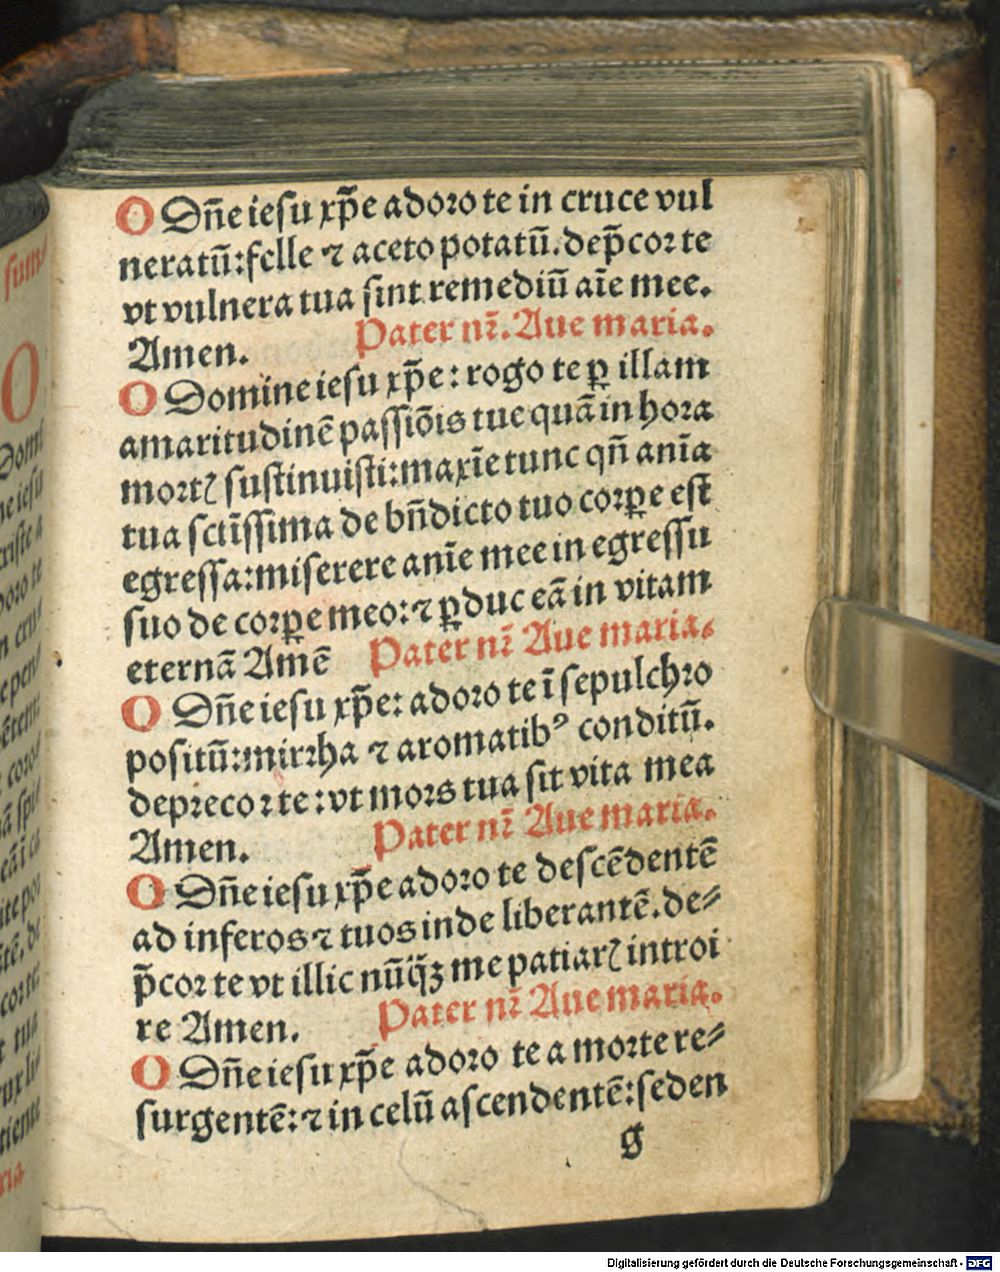 O Dñe iesu xp̄e adoro te in cruce vul
neratū:felle ⁊ aceto potatū.dep̄cor te
vt vulnera tua sint remediū aīe mee.
Amen. Pater nr̄. Aue maria.
O Domine iesu xp̄e: rogo te ꝑ illam
amaritudinē passiōis tue quā in hora
mortꝭ sustinuisti:maxīe tunc qñ anīa
tua sctīssima de bñdicto tuo corꝑe est
egressa:miserere anīe mee in egressu
suo de corꝑe meo:⁊ ꝑduc eā in vitam
eternā Amē Pater nr̄ Aue maria.
O Dñe iesu xp̄e: adoro te ī sepulchro
positū:mirrha ⁊ aromatibꝰ conditū.
deprecor te:vt mors tua sit vita mea
Amen. Pater nr̄ Aue maria.
O Dñe iesu xp̄e adoro te descēdentē
ad inferos ⁊ tuos inde liberantē.de⸗
p̄cor te vt illic nūq̄ꝫ me patiarꝭ introi
re Amen. Pater nr̄ Aue maria.
O Dñe iesu xp̄e adoro te a morte re⸗
surgentē:⁊ in celū ascendentē:seden
g
Digitalisierung gefördert durch die Deutsche Forschungsgemeinschaft - DFG